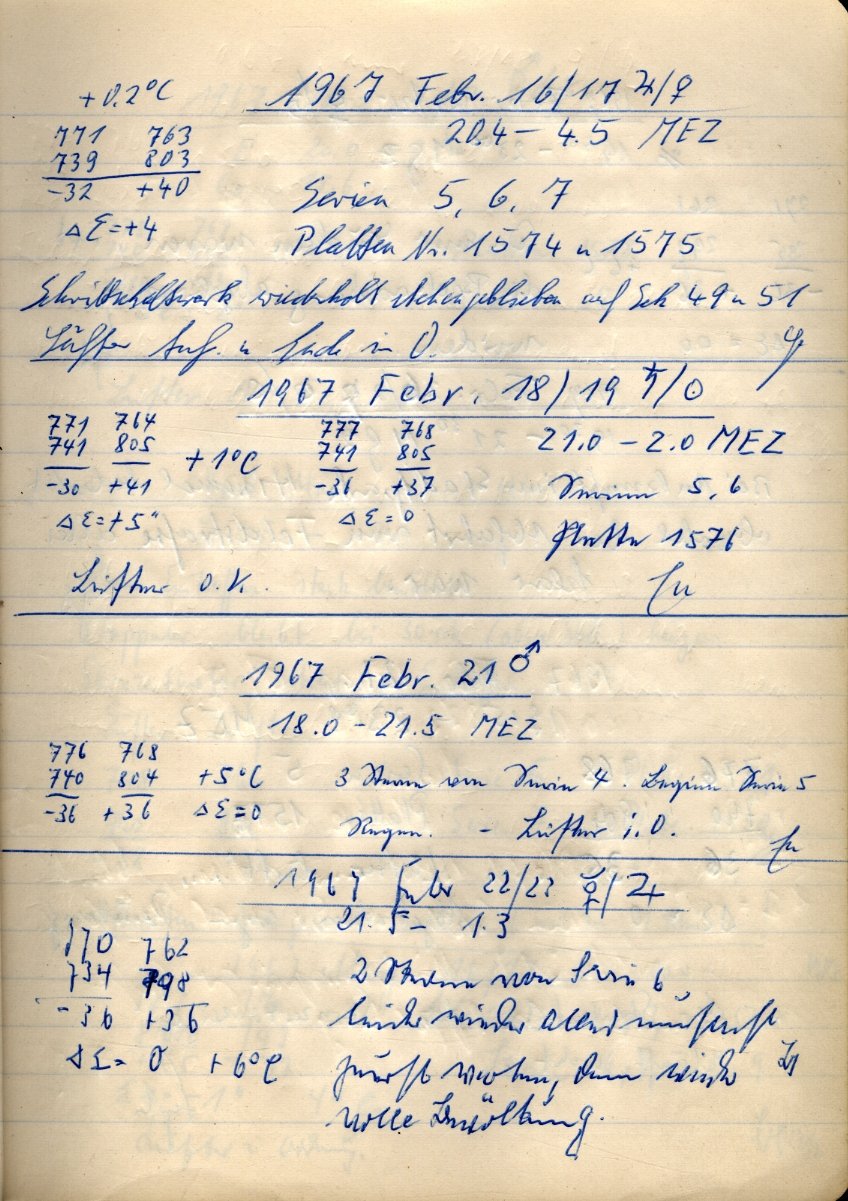 +0.2°C
1967 Febr. 16/17 ♃/♀
20.4 – 4.5 MEZ
771 763
739 803
-32 +40
Δ Σ = +4
Serien 5, 6, 7
Platten Nr. 1574 u 1575
Schrittschaltwerk wiederholt stehengeblieben auf Sek 49 u 51
Lüfter Anf. u Ende i. O.
1967 Febr. 18/19 ♄/☉
21.0 – 2.0 MEZ
771 764
741 805
-30 +41
Δ Σ = +5"
+1°C
777 768
741 805
-36 +37
Δ Σ = 0
Serien 5, 6
Platte 1576
Lüfter O.K.
1967 Febr. 21 ♂
18.0 – 21.5 MEZ
776 768
740 804
-36 +36
+5°C
Δ Σ = 0
3 Sterne von Serie 4. Beginn Serie 5
Regen. – Lüfter i. O.
1967 Febr 22/23 ☿/♃
21.5 – 1.3
770 762
734 798
-36 +36
Δ Σ = 0 +6°C
2 Sterne von Serie 6,
leider wieder
zuerst Wolken, dann wieder
volle Bewölkung.